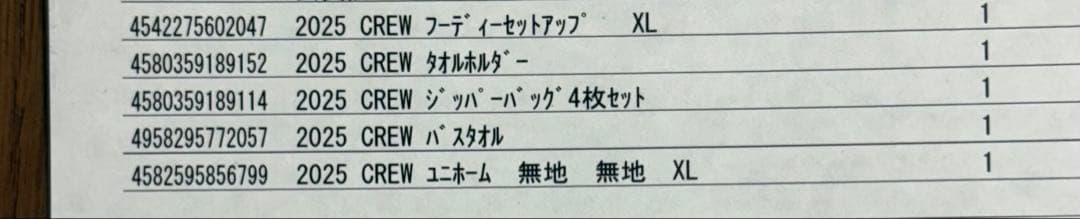 4542275602047 2025 CREW ﾌｰﾃﾞｨｰｾｯﾄｱｯﾌﾟ XL 1
4580359189152 2025 CREW ﾀｵﾙﾎﾙﾀﾞｰ 1
4580359189114 2025 CREW ｼﾞｯﾊﾟｰﾊﾞｯｸﾞ4枚ｾｯﾄ 1
4958295772057 2025 CREW ﾊﾞｽﾀｵﾙ 1
4582595856799 2025 CREW ﾕﾆﾎｰﾑ 無地 無地 XL 1